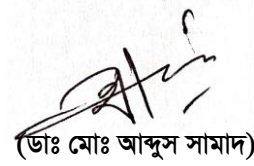 (ডাঃ মোঃ আব্দুস সামাদ)